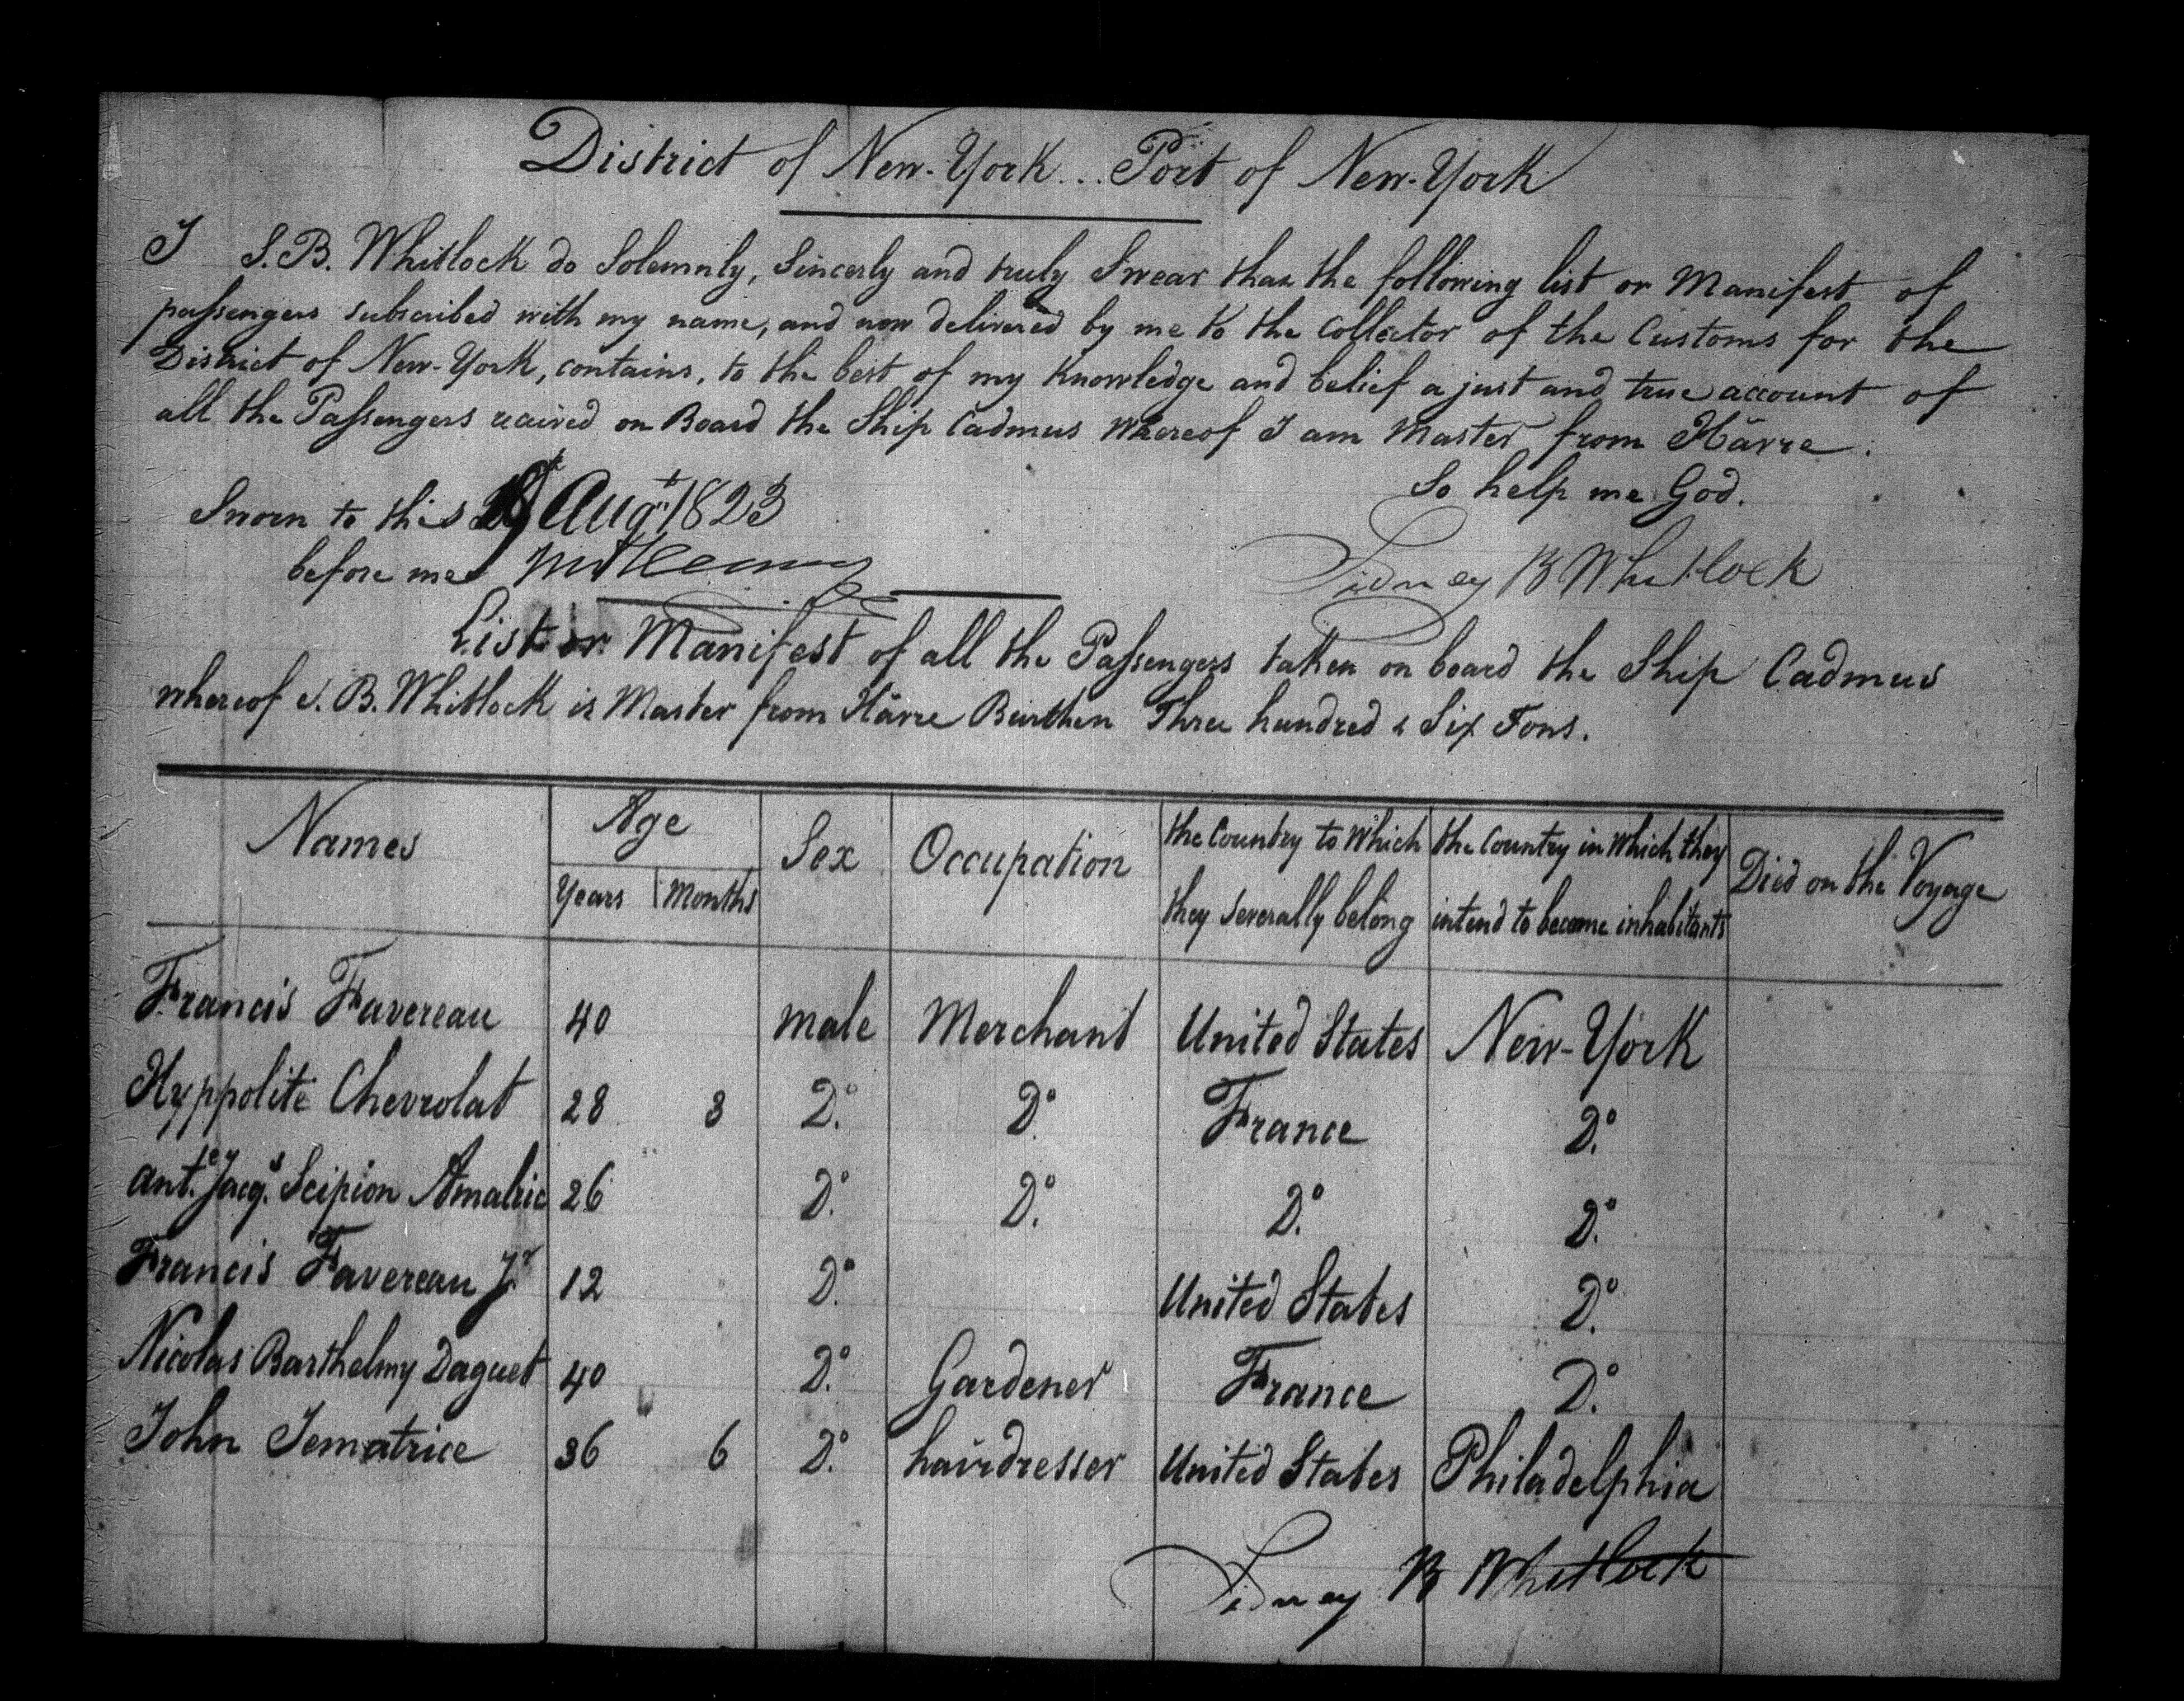 District of New-York... Port of New-York
I S. B. Whitlock do Solemnly, Sincerly and truly Swear that the following list or Manifest of
passengers subscribed with my name, and now delivered by me to the Collector of the Customs for the
District of New-York, contains, to the best of my Knowledge and belief a just and true account of
all the Passengers receaived on Board the Ship Cadmus whereof I am Master from Hâvre.
So help me God.
Sworn to this Augt 1823
before me
Sidney B Whitlock
List or Manifest of all the Passengers taken on board the Ship Cadmus
whereof S. B. Whitlock is Master from Hâvre Burthen Three hundred & Six Tons.
Names Age Years Months Sex Occupation the Country to Which they severally belong the Country in Which they intend to become inhabitants Died on the Voyage
Francis Favereau 40 male Merchant United States New-York
Hyppolite Chevrolat 28 3 Do. Do. France Do.
Ant.e Jacq.s Scipion Amalric 26 Do. Do. Do. Do.
Francis Favereau Jr 12 Do. United States Do.
Nicolas Barthelmy Daguet 40 Do. Gardener France Do.
John Jematrice 36 6 Do. hairdresser United States Philadelphia
Sidney B Whitlock